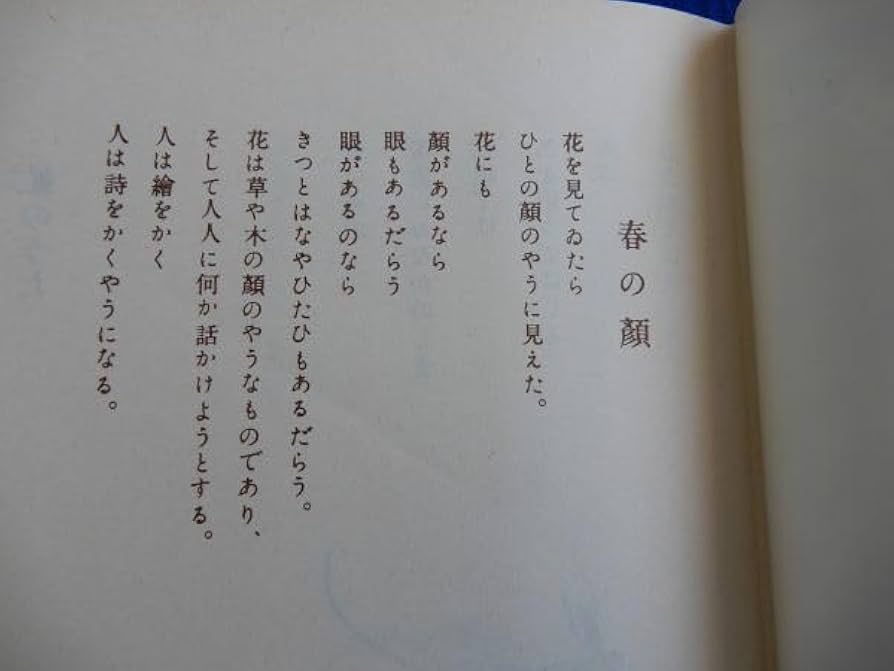 春の顏
花を見てゐたら
ひとの顏のやうに見えた。
花にも
顏があるなら
眼もあるだらう
眼があるのなら
きつとはなやひたひもあるだらう。
花は草や木の顏のやうなものであり、
そして人人に何か話かけようとする。
人は繪をかく
人は詩をかくやうになる。